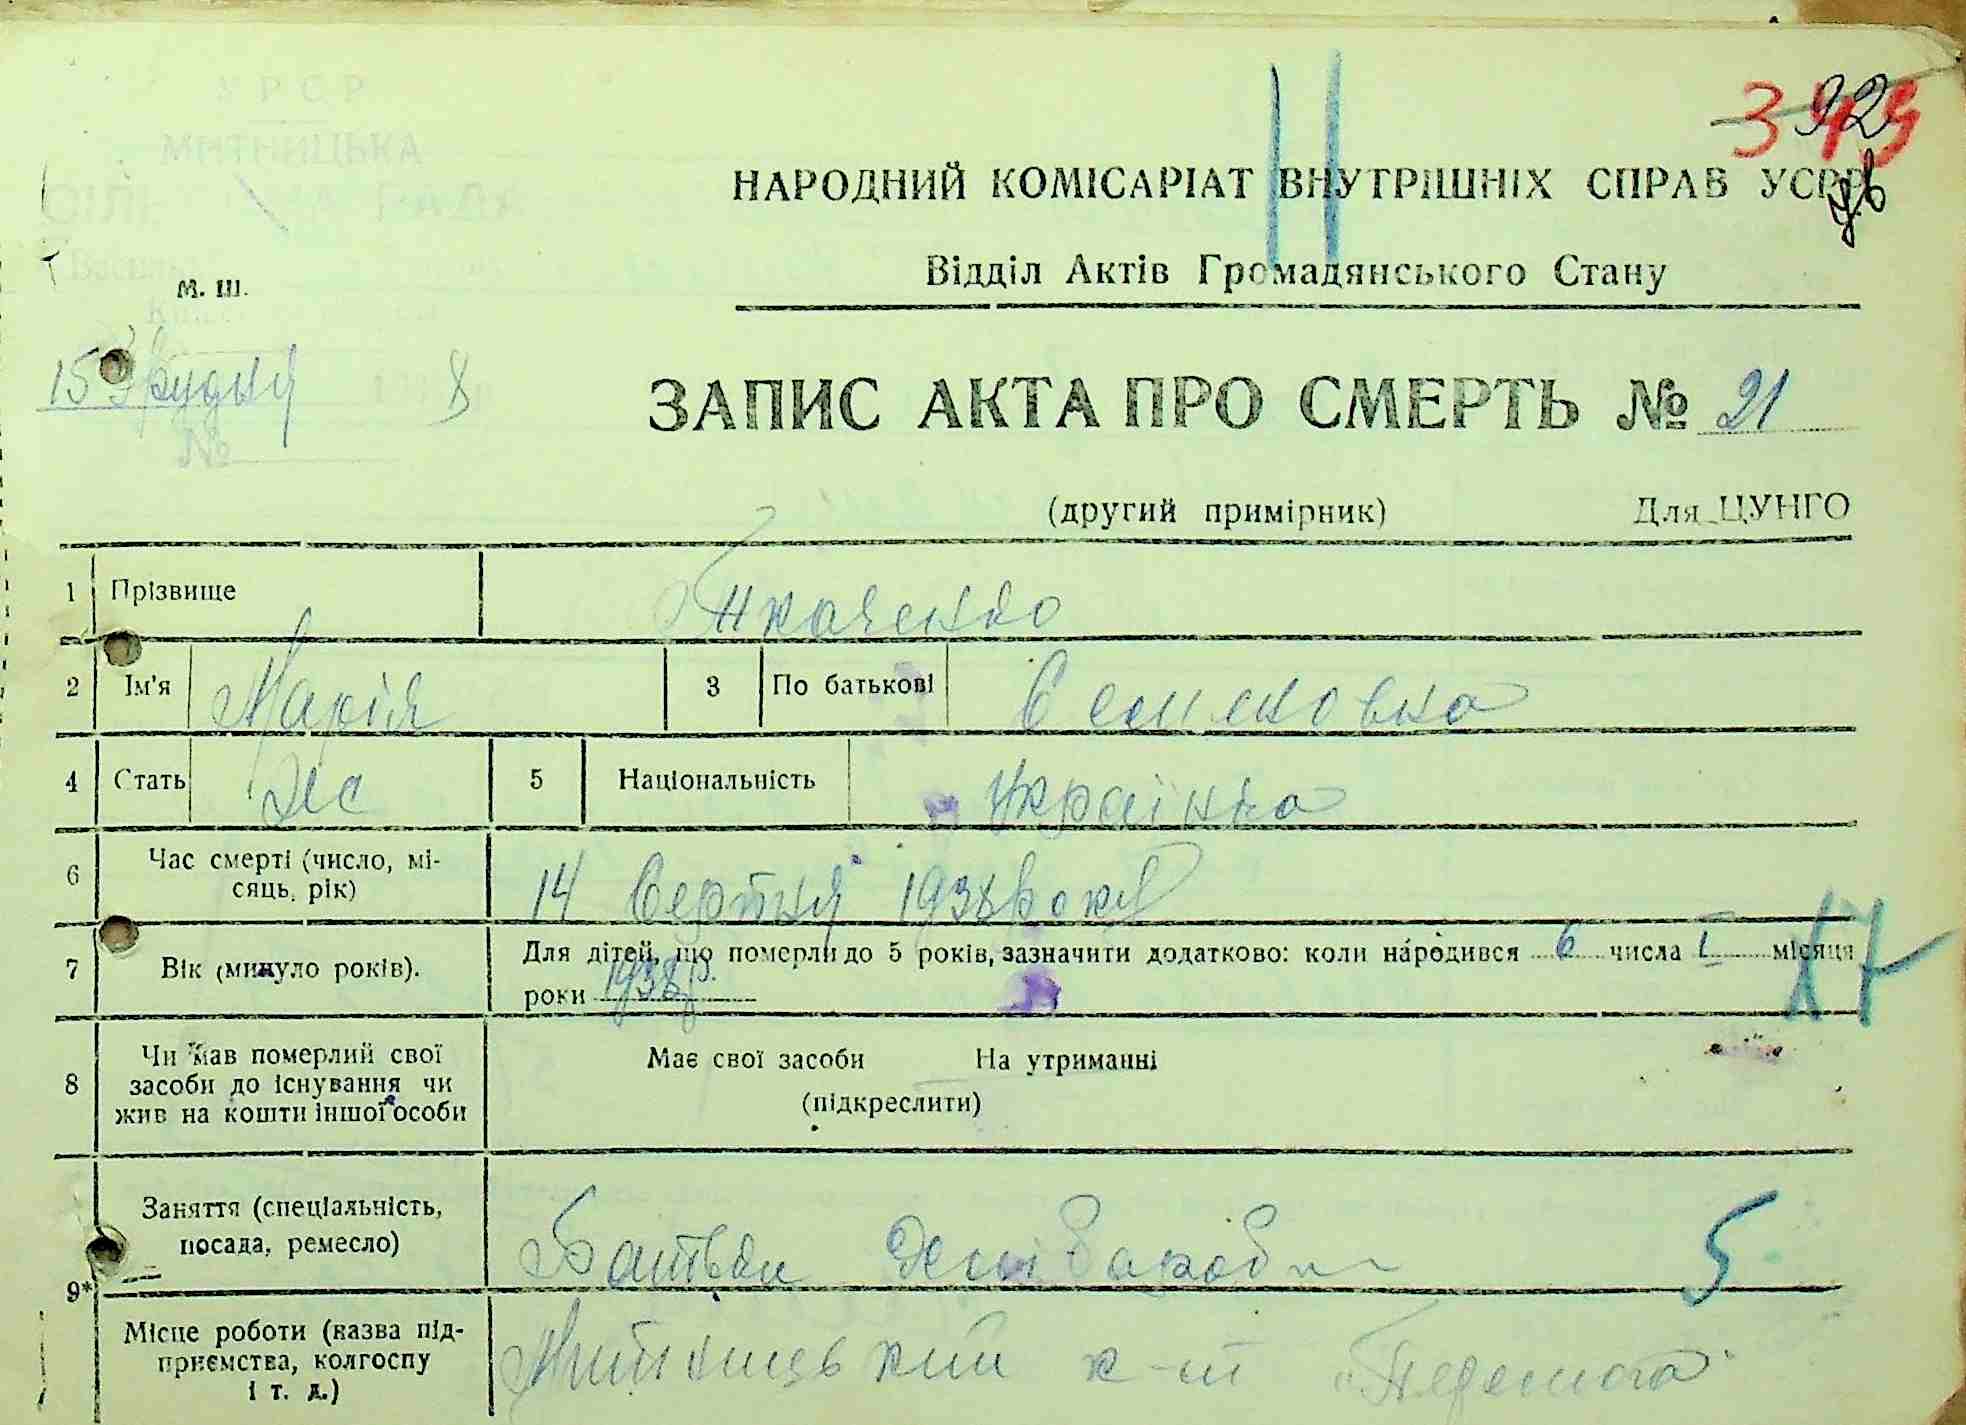 УРСР
МИТНИЦЬКА
РАДА
НАРОДНИЙ КОМІСАРІАТ ВНУТРІШНІХ СПРАВ УСРР
Відділ Актів Громадянського Стану
М. Ш.
15 Грудня 193 8 р
№
ЗАПИС АКТА ПРО СМЕРТЬ № 21
(другий примірник) Для ЦУНГО
1 Прізвище Ткаченко
2 Ім'я Марія 3 По батькові Семеновна
4 Стать Жіс 5 Національність Українка
6 Час смерті (число, мі-
сяць, рік) 14 Серпня 1938 року
7 Вік (минуло років). Для дітей, що померли до 5 років, зазначити додатково: коли народився 6 числа I місяця
роки 1938 р.
8 Чи мав померлий свої
засоби до існування чи
жив на кошти іншої особи
Має свої засоби На утриманні
(підкреслити)
9* Заняття (спеціальність,
посада, ремесло) Батьки 5
Місце роботи (назва під-
приємства, колгоспу
і т. д.) Митницький к-п "Перемога"